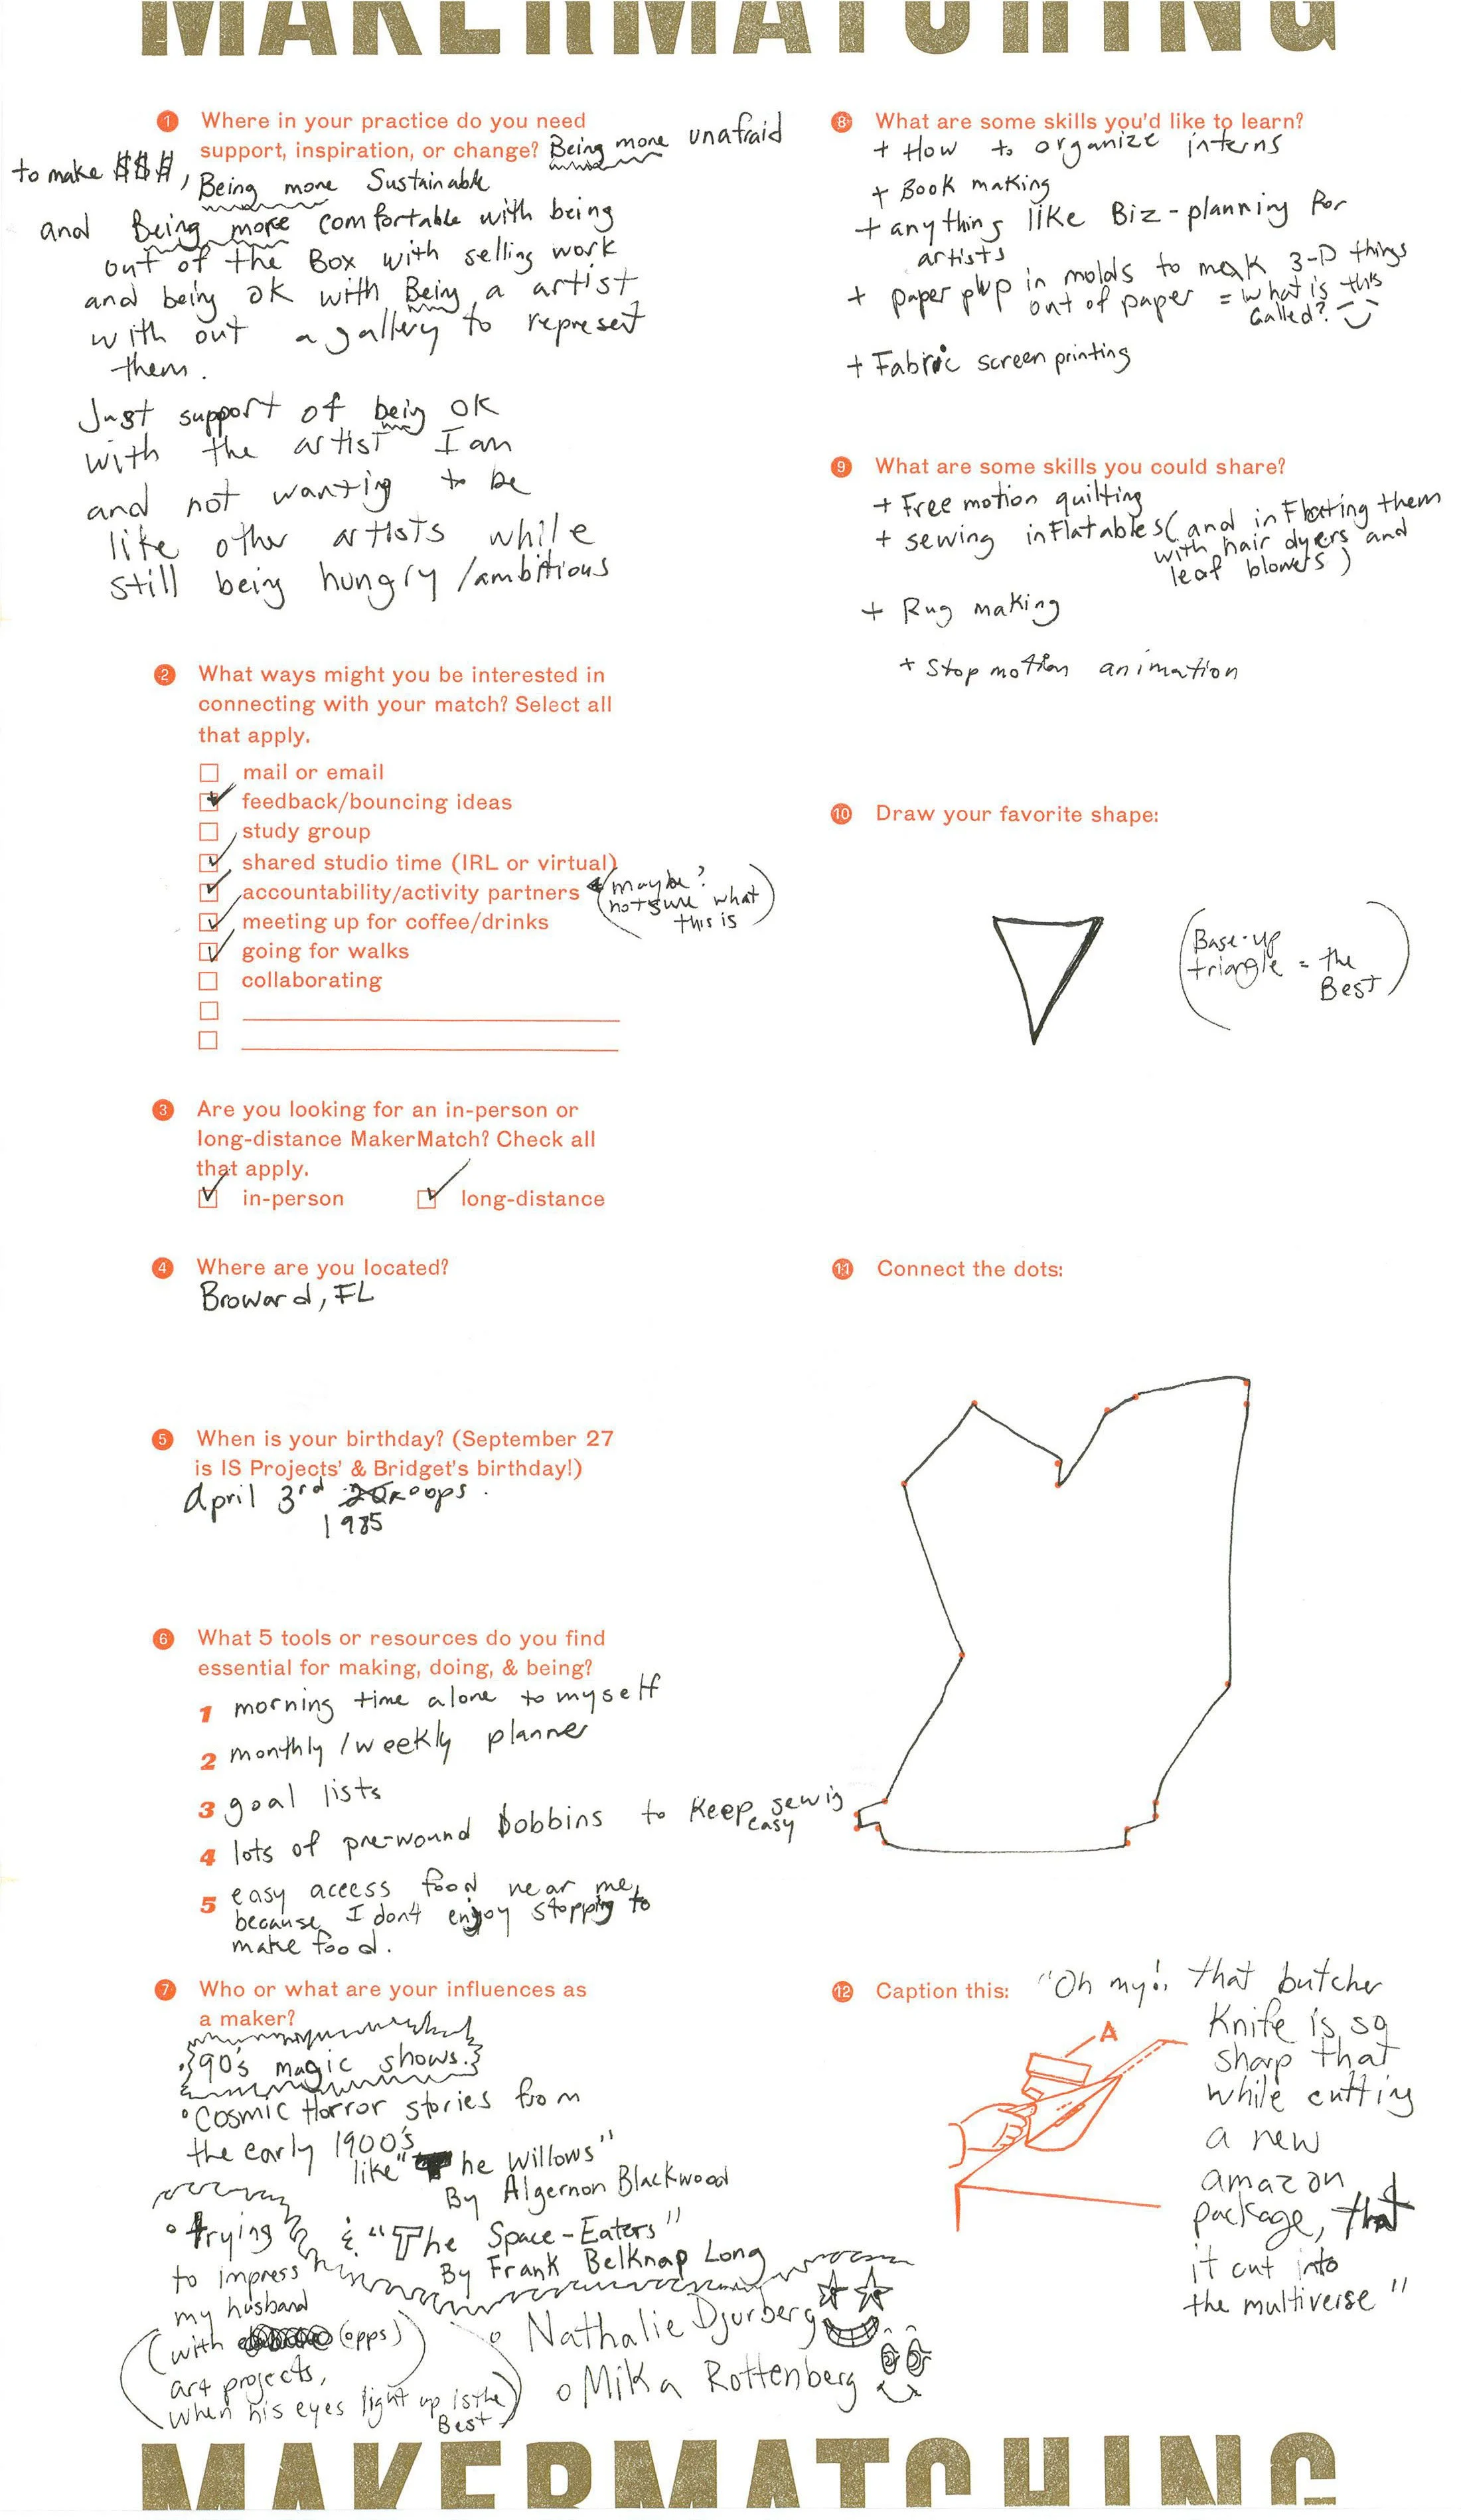 MAKERMATCHING
1 Where in your practice do you need
support, inspiration, or change? Being more unafraid
to make $$$, Being more Sustainable
and Being more comfortable with being
out of the Box with selling work
and being ok with Being a artist
with out a gallery to represent
them.
Just support of being ok
with the artist I am
and not wanting to be
like other artists while
still being hungry/ambitious
2 What ways might you be interested in
connecting with your match? Select all
that apply.
mail or email
feedback/bouncing ideas
study group
shared studio time (IRL or virtual)
accountability/activity partners (maybe?
not sure what
this is)
meeting up for coffee/drinks
going for walks
collaborating
3 Are you looking for an in-person or
long-distance MakerMatch? Check all
that apply.
in-person long-distance
4 Where are you located?
Broward, FL
5 When is your birthday? (September 27
is IS Projects' & Bridget's birthday!)
April 3rd oops.
1985
6 What 5 tools or resources do you find
essential for making, doing, & being?
1 morning time alone to myself
2 monthly/weekly planner
3 goal lists
4 lots of pre-wound bobbins to keep sewig
easy
5 easy access food near me,
because I don't enjoy stopping to
make food.
7 Who or what are your influences as
a maker?
• 90's magic shows.
• Cosmic Horror stories from
the early 1900's
like "The Willows"
By Algernon Blackwood
& "The Space-Eaters"
By Frank Belknap Long
• trying
to impress
my husband
(with (opps)
art projects,
when his eyes light up is the
Best)
o Nathalie Djurberg
o Mika Rottenberg
8 What are some skills you'd like to learn?
+ How to organize interns
+ Book making
+ anything like Biz-planning for
artists
+ paper plup in molds to mak 3-D things
out of paper = what is this
called?
+ Fabric screen printing
9 What are some skills you could share?
+ Free motion quilting
+ sewing inflatables (and inflating them
with hair dyers and
leaf blowers)
+ Rug making
+ Stop motion animation
10 Draw your favorite shape:
(Base-up
triangle = the
Best)
11 Connect the dots:
12 Caption this: "Oh my!, that butcher
Knife is so
sharp that
while cuttig
a new
amazon
package, that
it cut into
the multiverse"
A
MAKERMATCHING